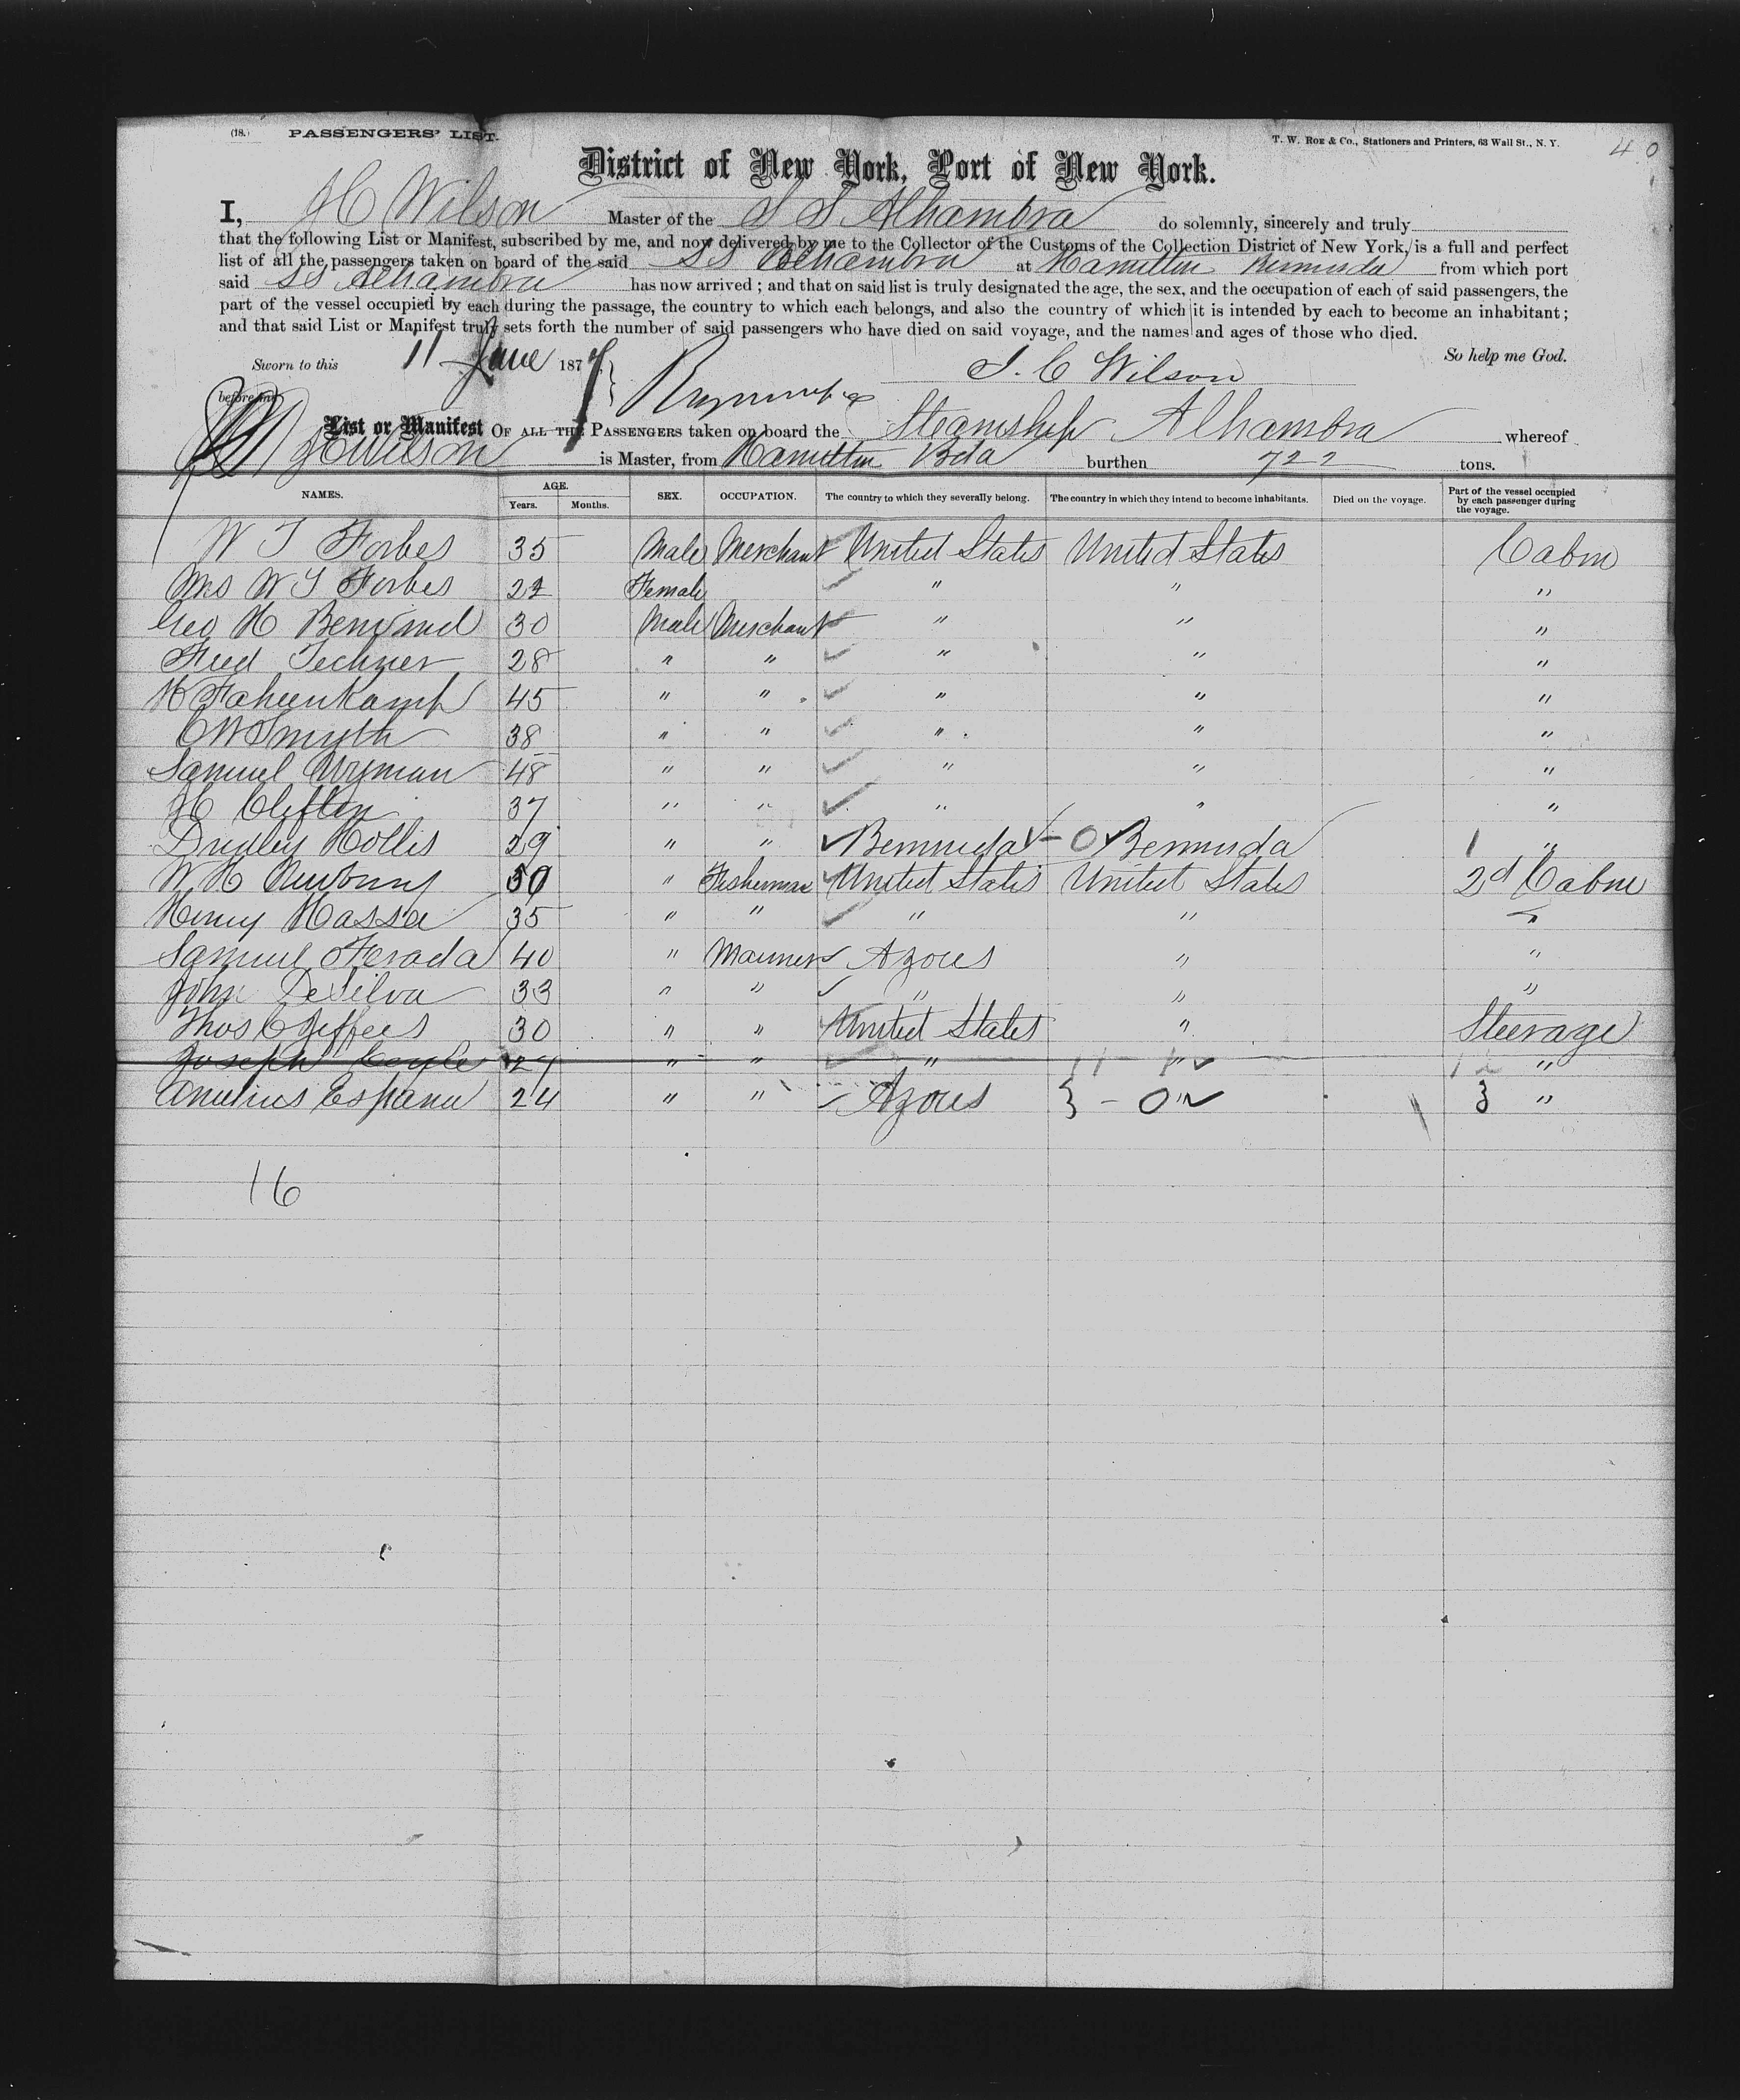 (18.) PASSENGERS' LIST. T. W. Roe & Co., Stationers and Printers, 63 Wall St., N. Y. 40
District of New York, Port of New York.
I, Wilson Master of the S S Alhambra do solemnly, sincerely and truly
that the following List or Manifest, subscribed by me, and now delivered by me to the Collector of the Customs of the Collection District of New York, is a full and perfect
list of all the passengers taken on board of the said SS Alhambra at Hamilton Bermuda from which port
said SS Alhambra has now arrived ; and that on said list is truly designated the age, the sex, and the occupation of each of said passengers, the
part of the vessel occupied by each during the passage, the country to which each belongs, and also the country of which it is intended by each to become an inhabitant;
and that said List or Manifest truly sets forth the number of said passengers who have died on said voyage, and the names and ages of those who died.
Sworn to this 11 June 187 C Wilson So help me God.
before me
List or Manifest OF ALL THE PASSENGERS taken on board the Steamship Alhambra whereof
Wilson is Master, from Hamilton Bda burthen 722 tons.
NAMES. AGE. Years. Months. SEX. OCCUPATION. The country to which they severally belong. The country in which they intend to become inhabitants. Died on the voyage. Part of the vessel occupied by each passenger during the voyage.
W Forbes 35 Male Merchant United States United States Cabin
Mrs W Forbes Female " " "
Geo H 30 Male Merchant " " "
Fred 28 " " " " "
H FahuenKamp 45 " " " " "
C W Smyth 38 " " " " "
Samuel Wyman 48 " " " " "
H Clifton 37 " " " " "
Dudley Hollis 29 " " Bermuda - O Bermuda 1 "
W H 50 " Fisherman United States United States 2d Cabin
Henry 35 " " " " "
Samuel 40 " Mariner Azores " "
John DeSilva 33 " " " " "
Thos C 30 " " United States " Steerage
Joseph " " " " "
Espanu 24 " " Azores } - O " 3 "
16